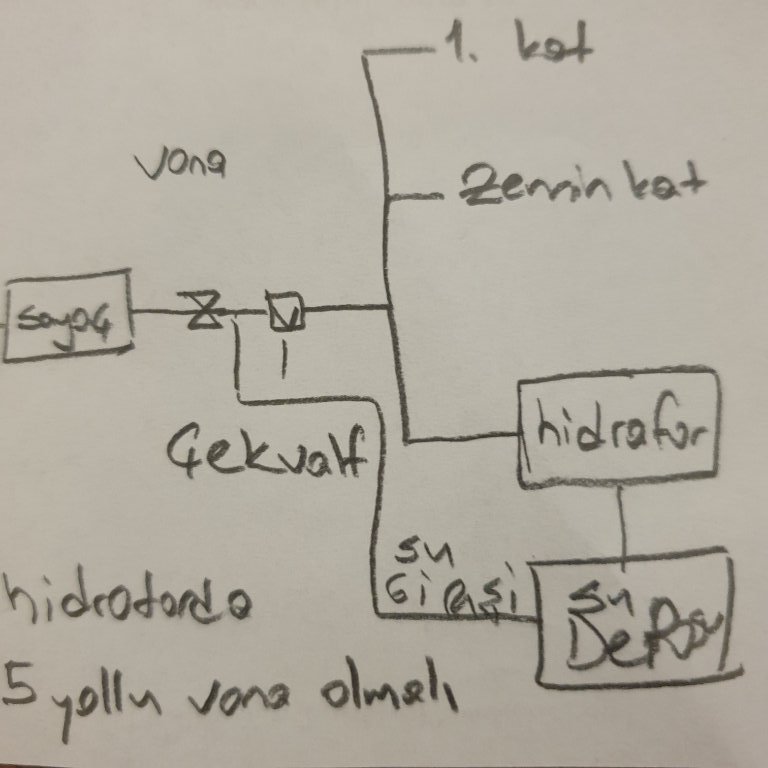 1. kat
vana
Zemin kat
sayaç
hidrafor
Çekvalf
su
Girişi
su
Deposu
hidroforda
5 yollu vana olmalı